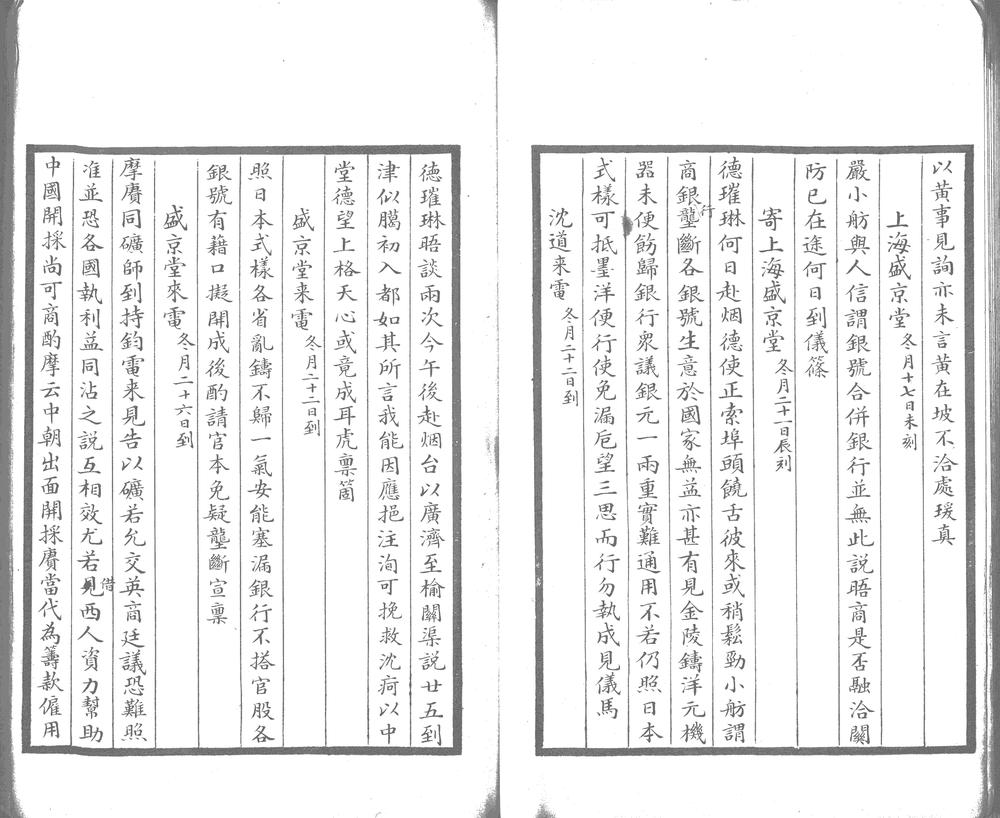 以黄事見詢亦未言黄在坡不洽處瑗真
上海盛京堂 冬月十七日未刻
嚴小舫與人信謂銀號合併銀行並無此説晤商是否融洽關
防已在途何日到儀篠
寄上海盛京堂 冬月二十一日辰刻
德璀琳何日赴烟德使正索埠頭饒舌彼來或稍鬆勁小舫謂
商銀行壟斷各銀號生意於國家無益亦甚有見金陵鑄洋元機
器未便飭歸銀行衆議銀元一兩重實難通用不若仍照日本
式樣可抵墨洋便行使免漏卮望三思而行勿執成見儀馬
沈道来電 冬月二十二日到
德璀琳晤談兩次今午後赴烟台以廣濟至榆關渠説廿五到
津似臈初入都如其所言我能因應挹注洵可挽救沈疴以中
堂德望上格天心或竟成耳虎禀箇
盛京堂来電 冬月二十二日到
照日本式樣各省亂鑄不歸一氣安能塞漏銀行不搭官股各
銀號有藉口擬開成後酌請官本免疑壟斷宣禀
盛京堂來電 冬月二十六日到
摩賡同礦師到持鈞電来見告以礦若允交英商廷議恐難照
准並恐各國執利益同沾之説互相效尤若借西人資力幫助
中國開採尚可商酌摩云中朝出面開採賡當代為籌款僱用